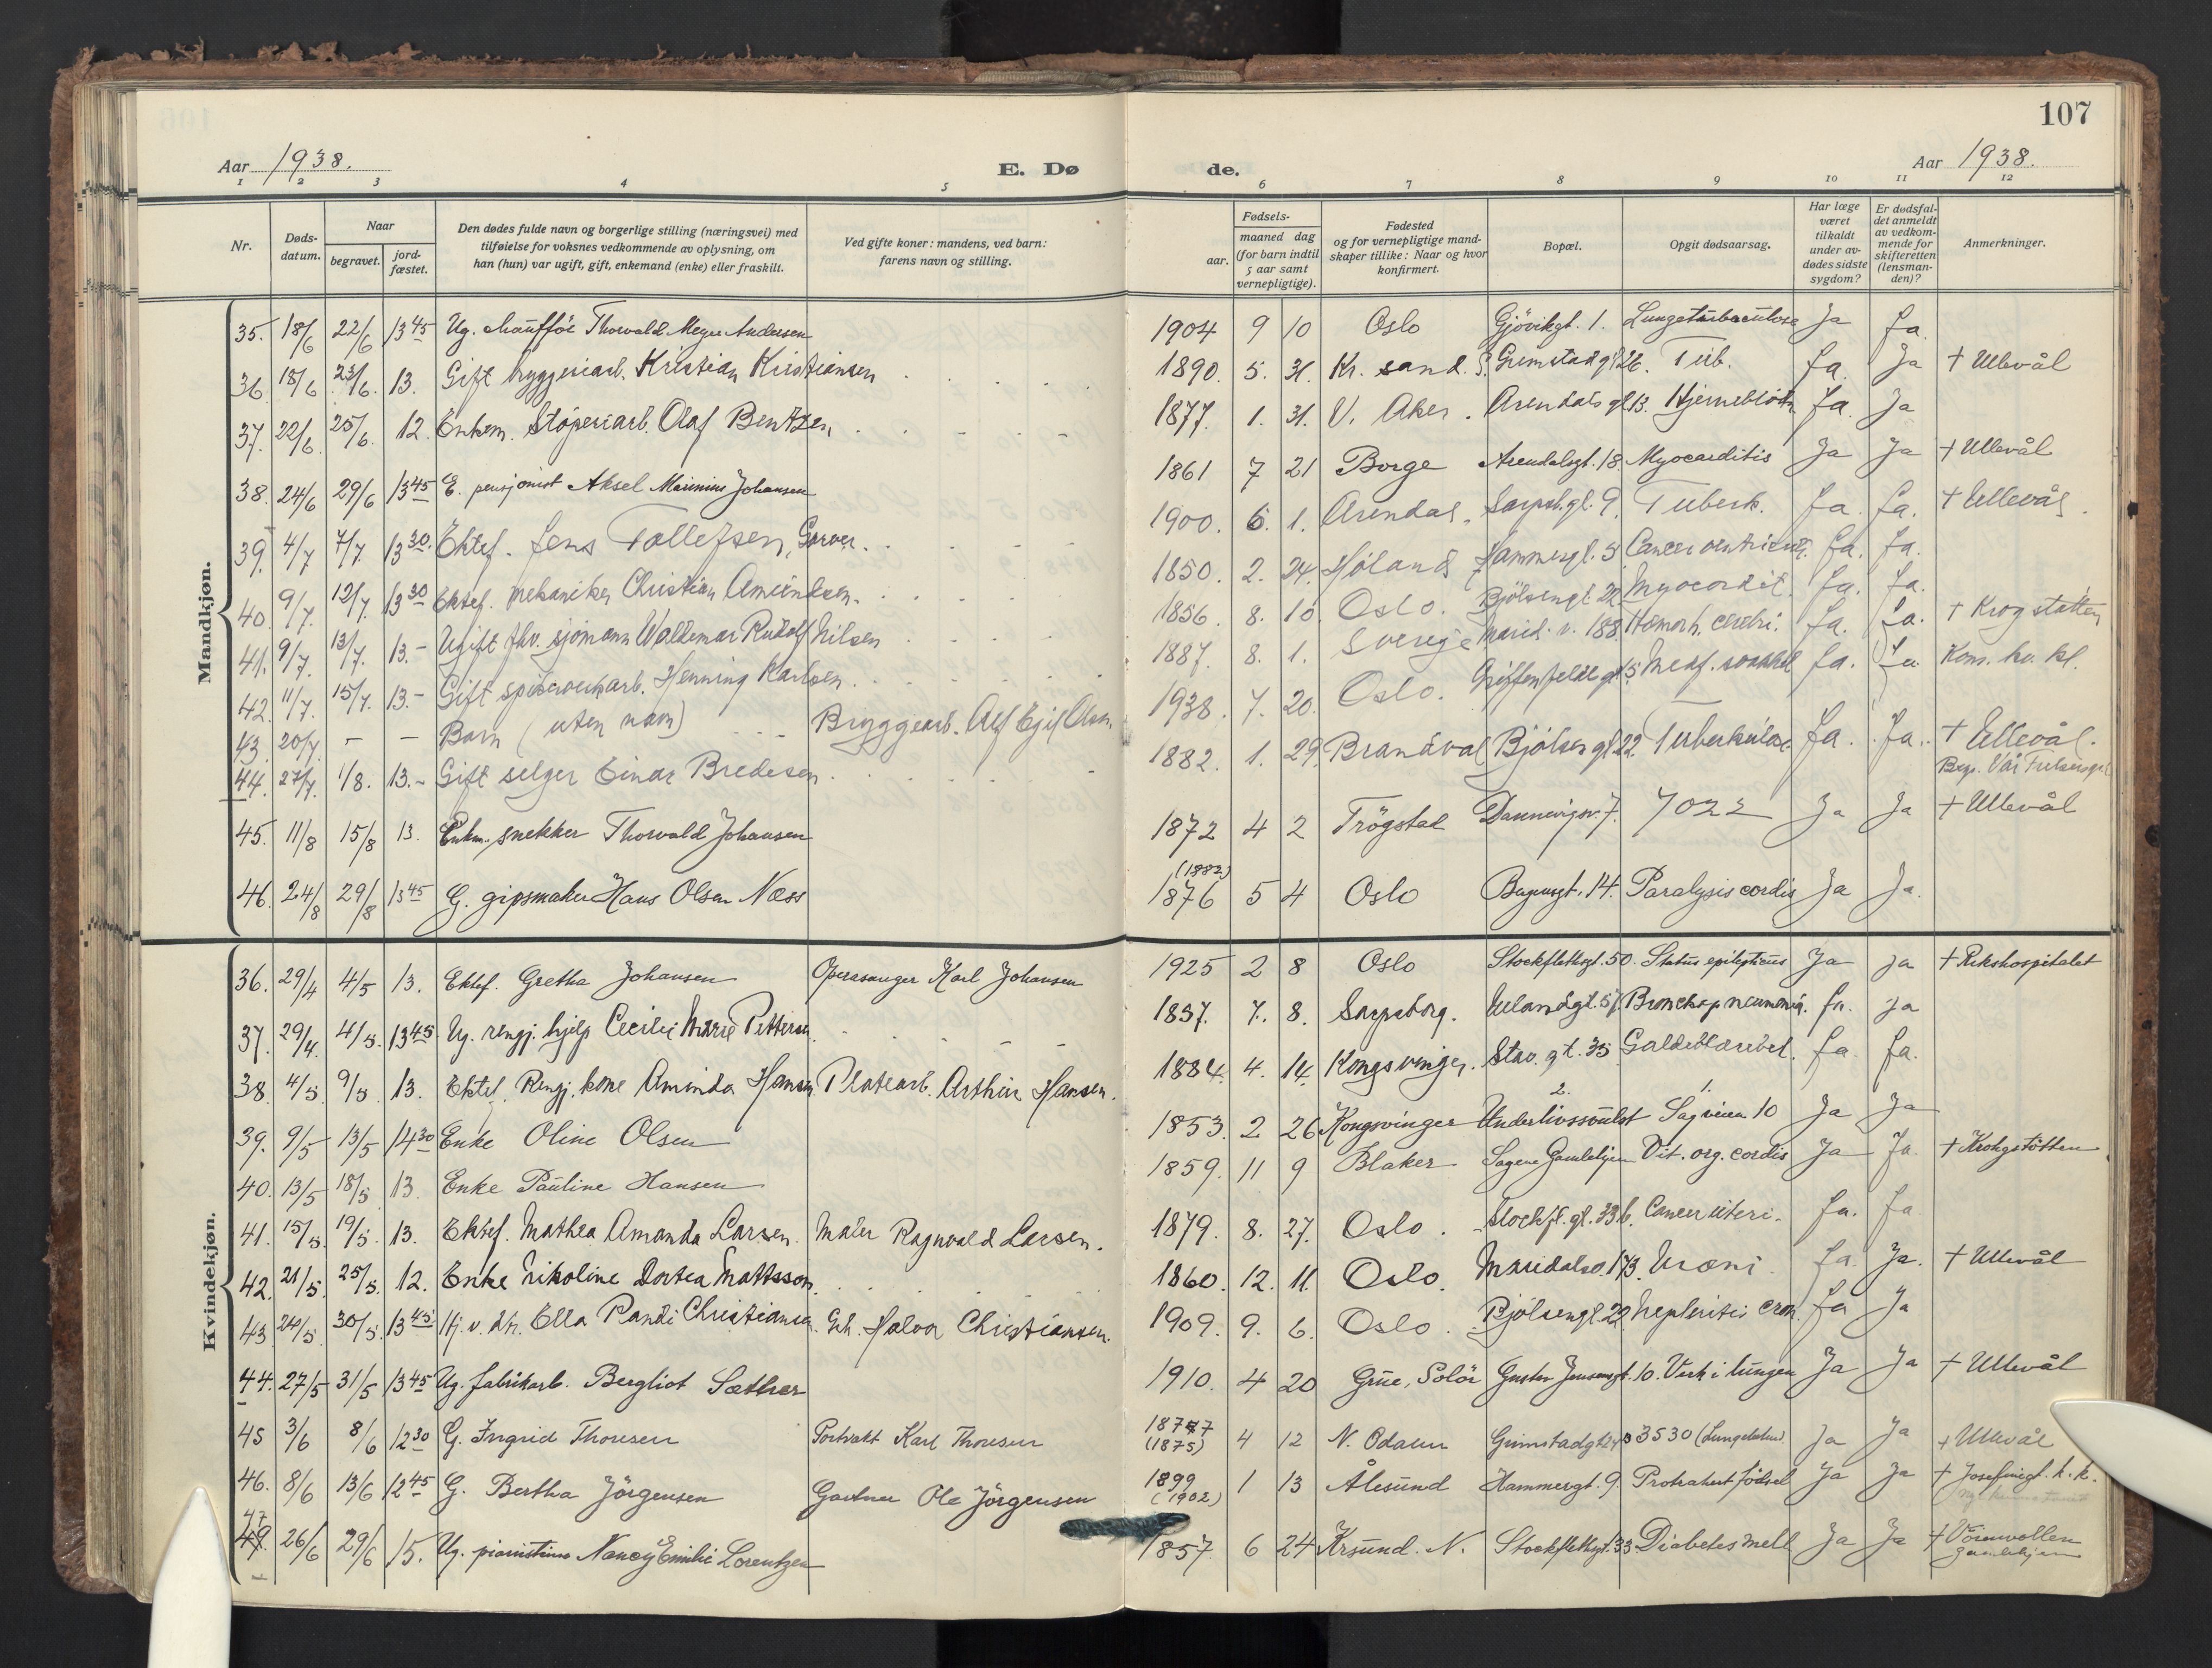 107
Aar 1938.
E. Dø
de.
Aar 1938.
1 2 3 4 5 6 7 8 9 10 11 12
Nr.
Døds-
datum.
Naar
begravet.
jord-
fæstet.
Den dødes fulde navn og borgerlige stilling (næringsvei) med
tilføielse for voksnes vedkommende av oplysning, om
han (hun) var ugift, gift, enkemand (enke) eller fraskilt.
Ved gifte koner: mandens, ved barn:
farens navn og stilling.
Fødsels-
aar.
maaned dag
(for barn indtil
5 aar samt
vernepligtige).
Fødested
og for vernepligtige mand-
skaper tillike: Naar og hvor
konfirmert.
Bopæl.
Opgit dødsaarsag.
Har læge
været
tilkaldt
under av-
dødes sidste
sygdom?
Er dødsfal-
det anmeldt
av vedkom-
mende for
skifteretten
(lensman-
den)?
Anmerkninger.
Mandkjøn.
35. 18/6 22/6 13 45 Ug. chaufför Thorvald Meyer Andersen 1904 9 10 Oslo Gjövikgt. 1. Lungetuberculose Ja Ja
36. 18/6 23/6. 13. Gift bryggeriarb. Kristian Kristiansen 1890. 5. 31. Kr. sand. S. Grimstadgt 26. Tub. Ja Ja + Ullevål
37. 22/6 25/6. 12. Enkem. Støperiarb. Olaf Bentzen 1877. 1. 31. V. Aker. Arendals gt 13. Hjerneblödn. Ja. Ja
38. 24/6 29/6 13 45 E. pensjonist Aksel Marinius Johansen 1861 7 21 Borge Arendalsgt. 18 Myocarditis Ja Ja + Ullevål
39. 4/7 7/7. 13 30. Ektef. Jens Tollefsen, Garver. 1900. 6. 1. Arendal. Sarpsb.gt. 9. Tuberk. Ja. Ja. + Ullevål.
40. 9/7. 12/7. 13 30 Ektef. mekaniker Christian Amundsen. 1850. 2. 24. Höland Hammergt. 5. Cancer ventriculi. Ja. Ja.
41. 9/7. 13/7. 13.- Ugift fhv. sjömann Waldemar Rudolf Nilsen 1856. 8. 10. Oslo. Bjölsengt 22. Myocardit. Ja. Ja.
42. 11/7. 15/7. 13.- Gift spikerverkarb. Henning Karlsen. 1887. 8. 1. Sverige Marid. v. 188. Hæmorh. cerebri. Ja. Ja. + Krogstøtten
43. 20/7. - - Barn (uten navn) Bryggearb. Alf Egil Olsen 1938. 7. 20. Oslo. Griffenfeldts gt 5. Ja. Ja Kom. hv. kl.
44. 27/7. 1/8. 13.- Gift selger Einar Bredesen 1882. 1. 29. Brandval Bjölsen gt 22. Tuberkulose Ja. Ja. + Ullevål.
Begr. Vår Frelsersgr.
45. 11/8 15/8 13. Enkm. snekker Thorvald Johansen 1872 4 2 Trögstad Dannevigsv. 7. 7022 Ja Ja + Ullevål
(1882)
46. 24/8 29/8 13 45 G. gipsmaker Hans Olsen Næss 1876 5 4 Oslo Bergensgt. 14. Paralysis cordis Ja Ja.
Kvindekjøn.
36. 29/4 4/5 13. Ektef. Gretha Johansen Operasanger Karl Johansen 1925 2 8 Oslo Stockflethsgt. 50. Status epilepticus Ja Ja + Rikshospitalet
37. 29/4. 4/5. 13 45. Ug. rengj. hjelp Cecilie Marie Pettersen 1857. 7. 8. Sarpsborg. Uelandsgt. 57. Bronchopneumonia. Ja. Ja
38. 4/5. 9/5. 13. Ektef. Rengj. kone Aminda Hansen Platearb. Arthur Hansen. 1884. 4. 14. Kongsvinger. Stav. gt. 35 Galdeblærebet. Ja. Ja.
2. 1.
39. 9/5 13/5 14 30 Enke Oline Olsen 1853. 2 26 Kongsvinger Underlivssvulst Sagveien 10 Ja Ja
40. 13/5 18/5 13. Enke Pauline Hansen 1859. 11 9 Blaker Sagene Gamlehjem Vit. org. cordis Ja Ja. + Krohgstötten
41. 15/5. 19/5. 13. Ektef. Mathea Amanda Larsen. Maler Ragnvald Larsen. 1879. 8. 27. Oslo. Stockfl. gt. 33 b. Cancer uteri. Ja. Ja
42. 21/5. 25/5. 12. Enke Nikoline Dortea Mattsson. 1860. 12. 11. Oslo. Maridalsv. 173. Uræmi. Ja. Ja. + Ullevål
43. 24/5. 30/5. 13 45. Hj. v. dtr. Ella Randi Christiansen. Halvor Christiansen. 1909. 9. 6. Oslo. Bjölsengt. 22. Nephritis cron. Ja Ja
44. 27/5 31/5 13 45 Ug. fabrikarb. Bergliot Sæther 1910. 4 20 Grue, Solör Gustav Jensensgt. 10. Verk i lungen Ja Ja + Ullevål
45 3/6 8/6 12 30 G. Ingrid Thoresen Portvakt Karl Thoresen 1877 (1875) 4 12 N. Odalen Grimstadgt 24 3530 Ja Ja + Ullevål
46. 8/6 13/6 12 45 G. Bertha Jörgensen Gartner Ole Jörgensen 1899 (1902) 1 13 Ålesund Hammergt. 9. Protrahert födsel Ja Ja + Josefinegt. k. k.
47. 26/6 29/6 15. Ug. pianistinne Nancy Emilie Lorentzen 1857. 6 24 Krsund. N. Stockflethsgt. 33 Diabetes mell Ja Ja +
Gamlehjem